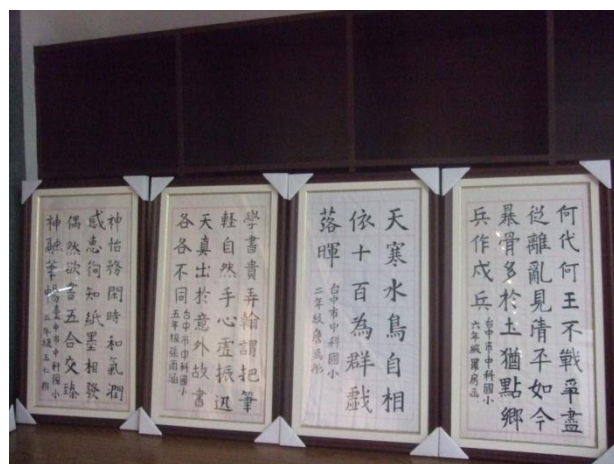 何代何王不戰爭盡
從離亂見清平如今
暴骨多於土猶點鄉
兵作戍兵
台中市中科國小
六年級羅
天寒水鳥自相
依十百為群戲
落暉
台中市中科國小
二年級詹
學書貴弄翰謂把筆
輕自然手心虛振迅
天真出於意外故書
各各不同
台中市中科國小
五年級張雨涵
神怡務閑時和氣潤
感惠徇知紙墨相發
偶然欲書五合交臻
神融筆暢
臺中市中科國小
年級王